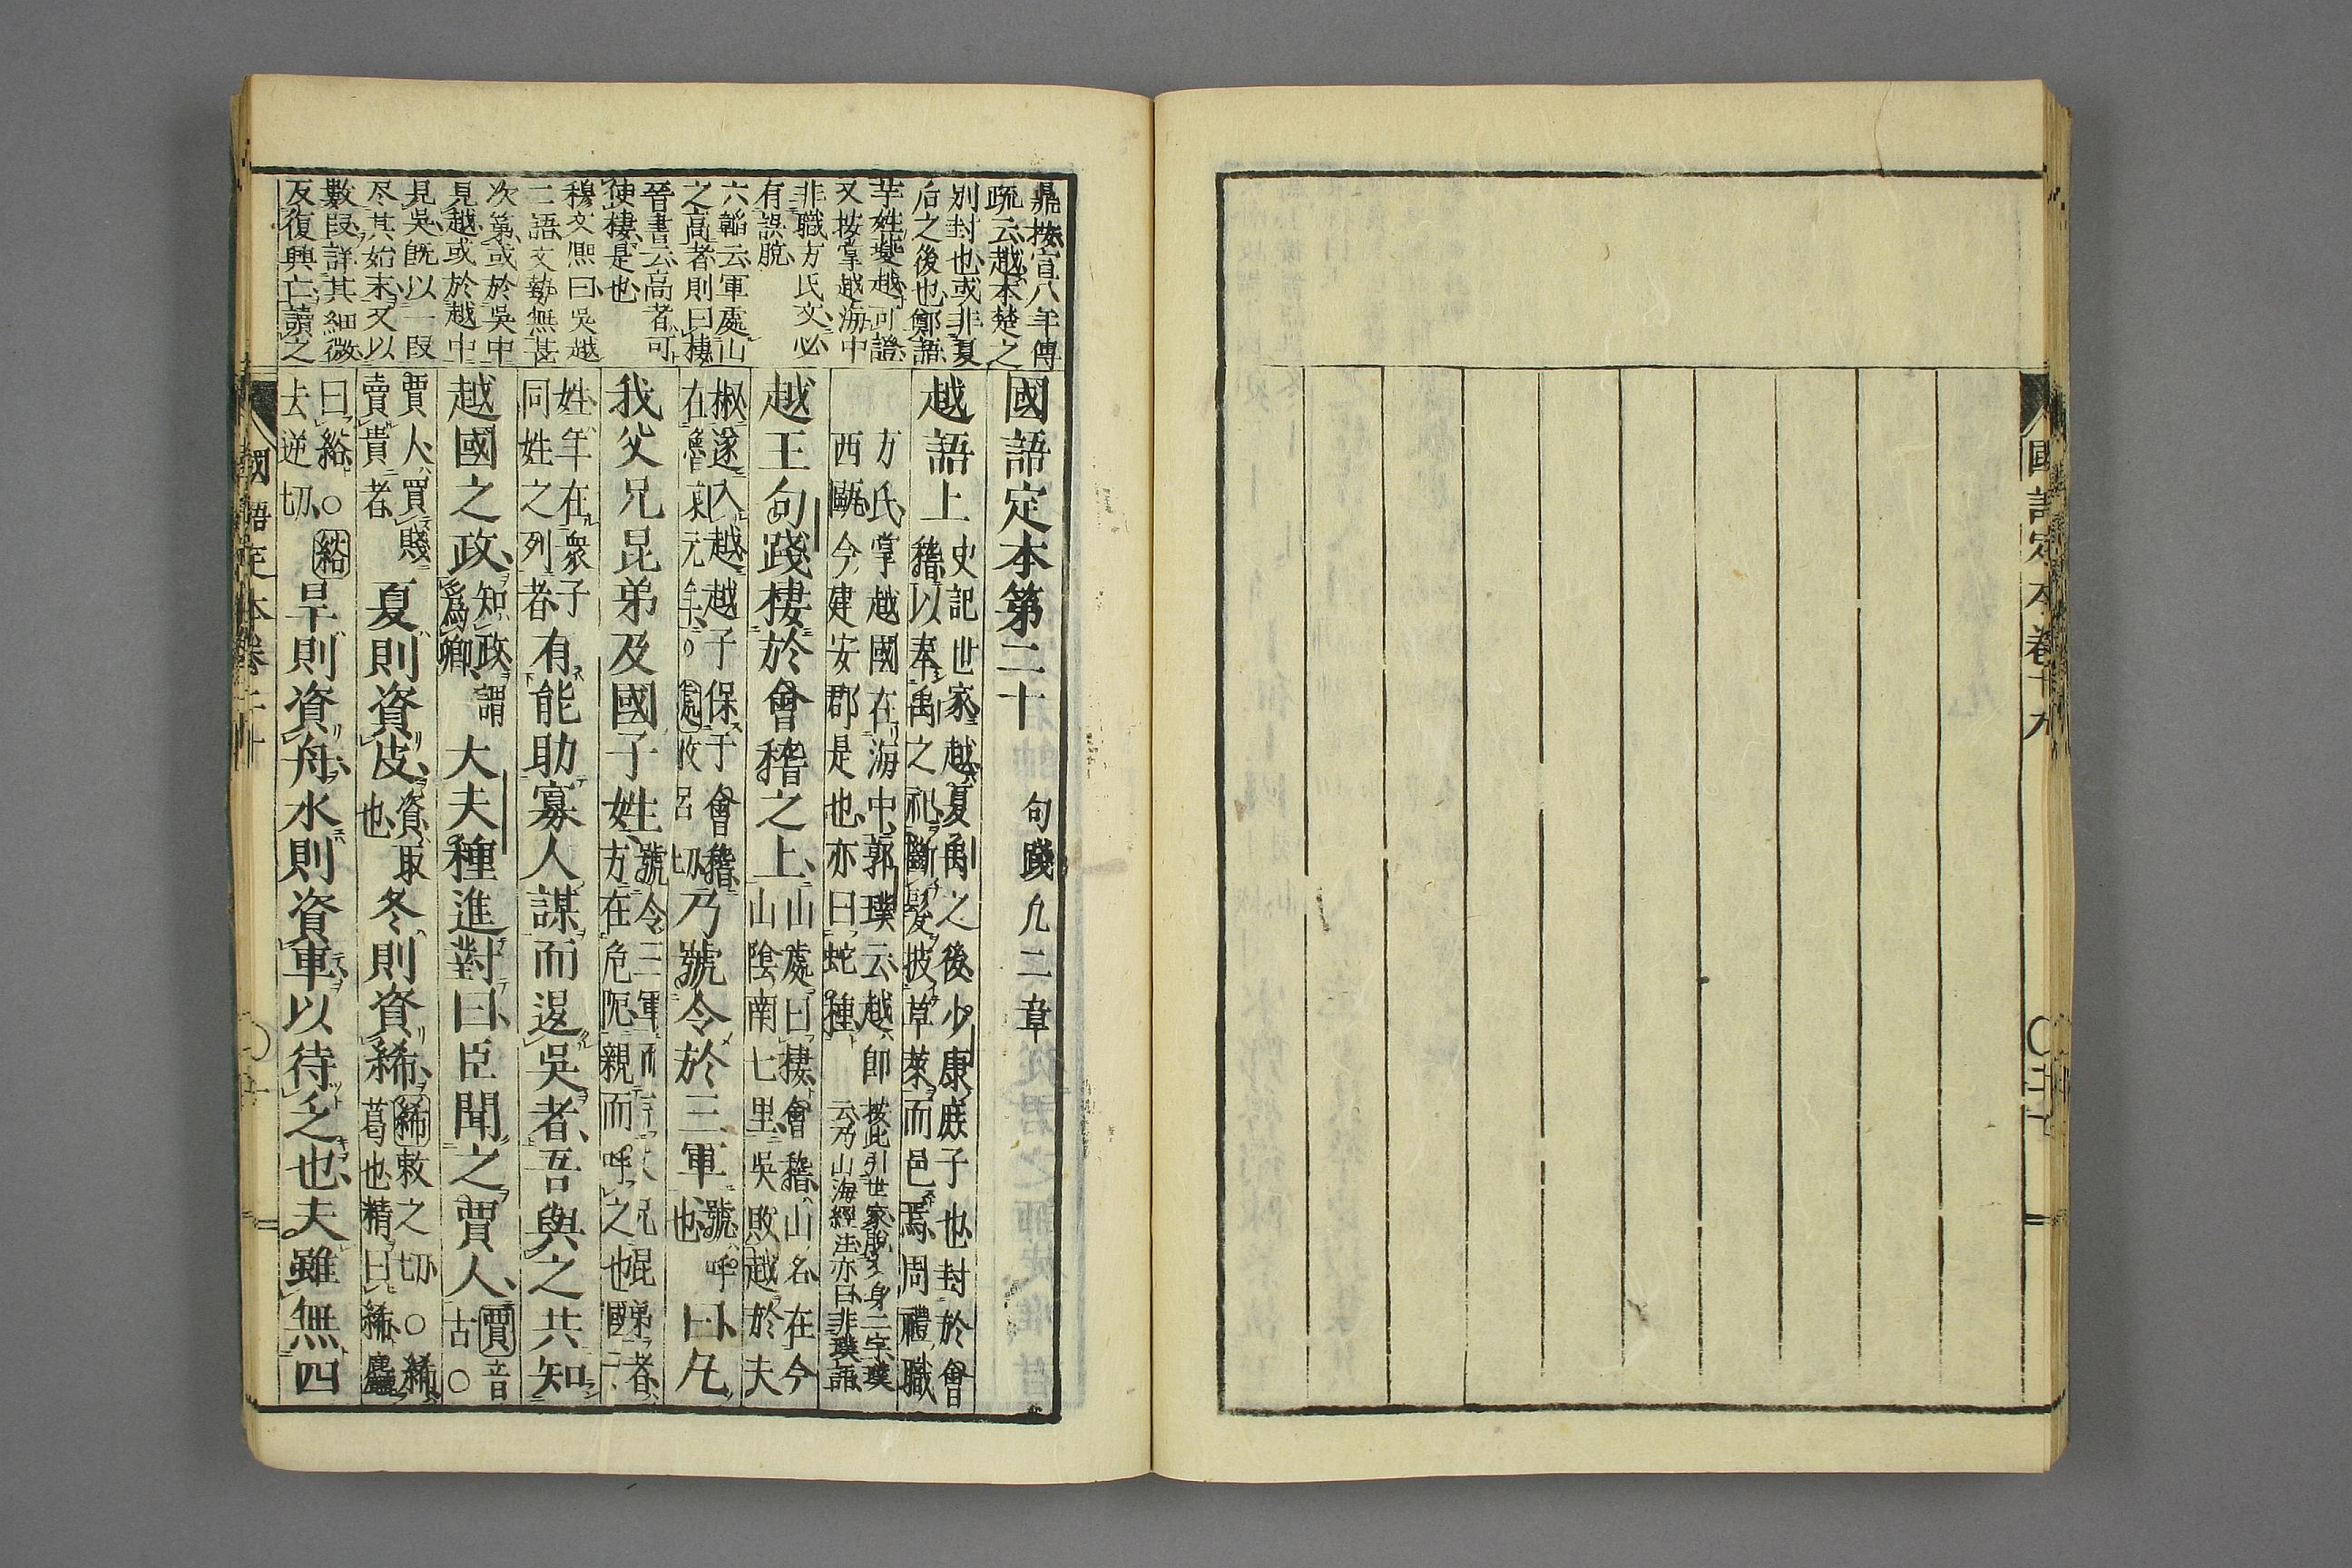 國語定本卷十九
鼎按宣八年傳
疏云越本楚之
別封也或非夏
后之後也鄭語
芉姓夔越可證
又按掌越海中
非職方氏文必
有誤脫
六韜云軍處山
之高者則曰棲
晉書云高者可
使棲是也
穆文熙曰吳越
二語文勢無甚
次第或於吳中
見越或於越中
見吳既以一段
尽其始末又以
數段詳其細微
反復興亡讀之
國語定本第二十 句踐凡二章
越語上 史記世家越夏禹之後少康庶子也封於會
稽以奉禹之祀斷髮披草萊而邑焉周禮職
方氏掌越國在海中郭璞云越即 按此引世家脫文身二字璞
西甌今建安郡是也亦曰蛇種 云乃山海經注亦曰非璞語
越王句踐棲於會稽之上 山處曰棲會稽山名在今
山陰南七里吳敗越於夫
椒遂入越越子保于會稽
在魯哀元年○處攻呂切
乃號令於三軍 號呼也 曰凡
我父兄昆弟及國子姓 號令三軍而言父兄昆弟者
方在危阨親而呼之也國子
姓年在衆子
同姓之列者
有能助寡人謀而退吳者吾與之共知
越國之政 知政謂爲卿 大夫種進對曰臣聞之賈人 賈音古○
賈人買賤
賣貴者
夏則資皮 資取也 冬則資絺 絺敕之切○絺
葛也精曰絺麤
曰綌○綌
去逆切
旱則資舟水則資車以待乏也夫雖無四
國語定本卷二十